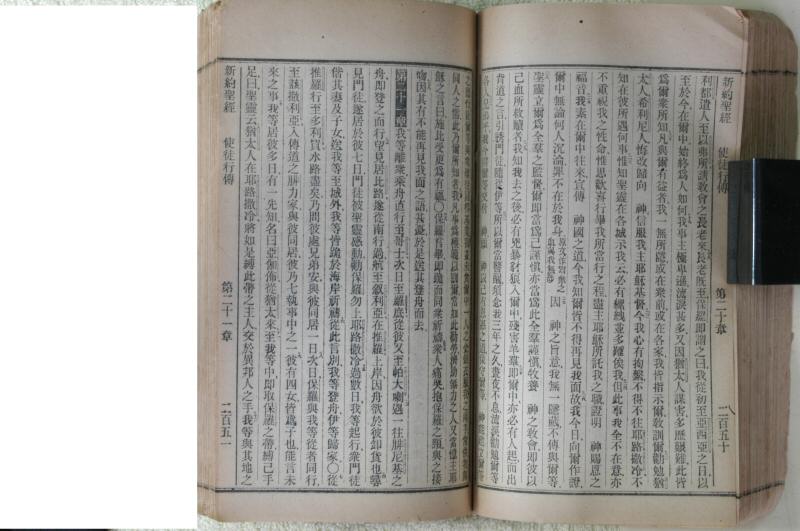 新約聖經 使徒行傳 第二十章 二百五十
利都遣人至以弗所請教會之長老來長老旣至保羅卽謂之曰我從初至亞西亞之日以
至於今在爾中始終爲人如何我事主極卑遜流淚甚多又因猶太人謀害多歷艱難此皆
爲爾衆所知凡與爾有益者我一無所隱或在衆前或在各家我皆指示爾敎訓爾勸勉猶
太人希利尼人悔改歸向 神信服我主耶穌基督今我心有拘繫不得不往耶路撒冷不
知在彼所遇何事惟知聖靈在各城示我云必有縲絏並多難俟我但此事我全不在意亦
不重視我之性命惟思歡喜行畢我所當行之程盡主耶穌所託我之職證明 神賜恩之
福音我素在爾中往來宣傳 神國之道今我知爾皆不得再見我面故我今日向爾作證
爾中無論何人沉淪罪不在於我身 因 神之旨意我無一隱藏不傳與爾等
聖靈立爾爲全羣之監督爾卽當爲己謹愼亦當爲此全羣謹愼牧養 神之敎會卽彼以
己血所救贖者我知我去之後必有兇暴豺狼入爾中殘害羊羣卽爾中亦必有人起而出
背道之言引誘門徒隨從伊等所以爾當儆醒須念我三年之久晝夜不息流淚勸勉爾等
同人之需此乃爾所知者我凡事爲模範以訓爾當如此勤勞扶助懦力之人又當憶主耶
穌之言曰施比受更爲有福〇保羅言畢卽跪而同衆祈禱衆人痛哭抱保羅之頸與之接
吻因其有不能再見我面之語甚憂於是送其登舟而去
第二十一章我等離衆乘舟直行至哥士次日至羅底從彼又至帕大喇遇一往腓尼基之
舟卽登之而行望見居比路遂從南行過航至叙利亞在推羅上岸因舟欲於彼卸貨也尋
見門徒遂居於彼七日門徒被聖靈感動勸保羅勿上耶路撒冷過數日我等起行衆門徒
偕其妻及子女送我等至城外我等皆跪於海岸祈禱從此言別我等登舟伊等歸家〇從
推羅行至多利買水路盡矣乃問彼處兄弟安與彼同居一日次日保羅與我等從者同行
至該撒利亞入傳道之腓力家與彼同居彼乃七執事中之一彼有四女皆處子也能言未
來之事我等居彼多日有一先知名曰亞迦佈從猶太來至我等中卽取保羅之帶縛己手
足曰聖靈云猶太人在耶路撒冷將如是縛此帶之主人交於異邦人之手我等與其地之
新約聖經 使徒行傳 第二十一章 二百五一